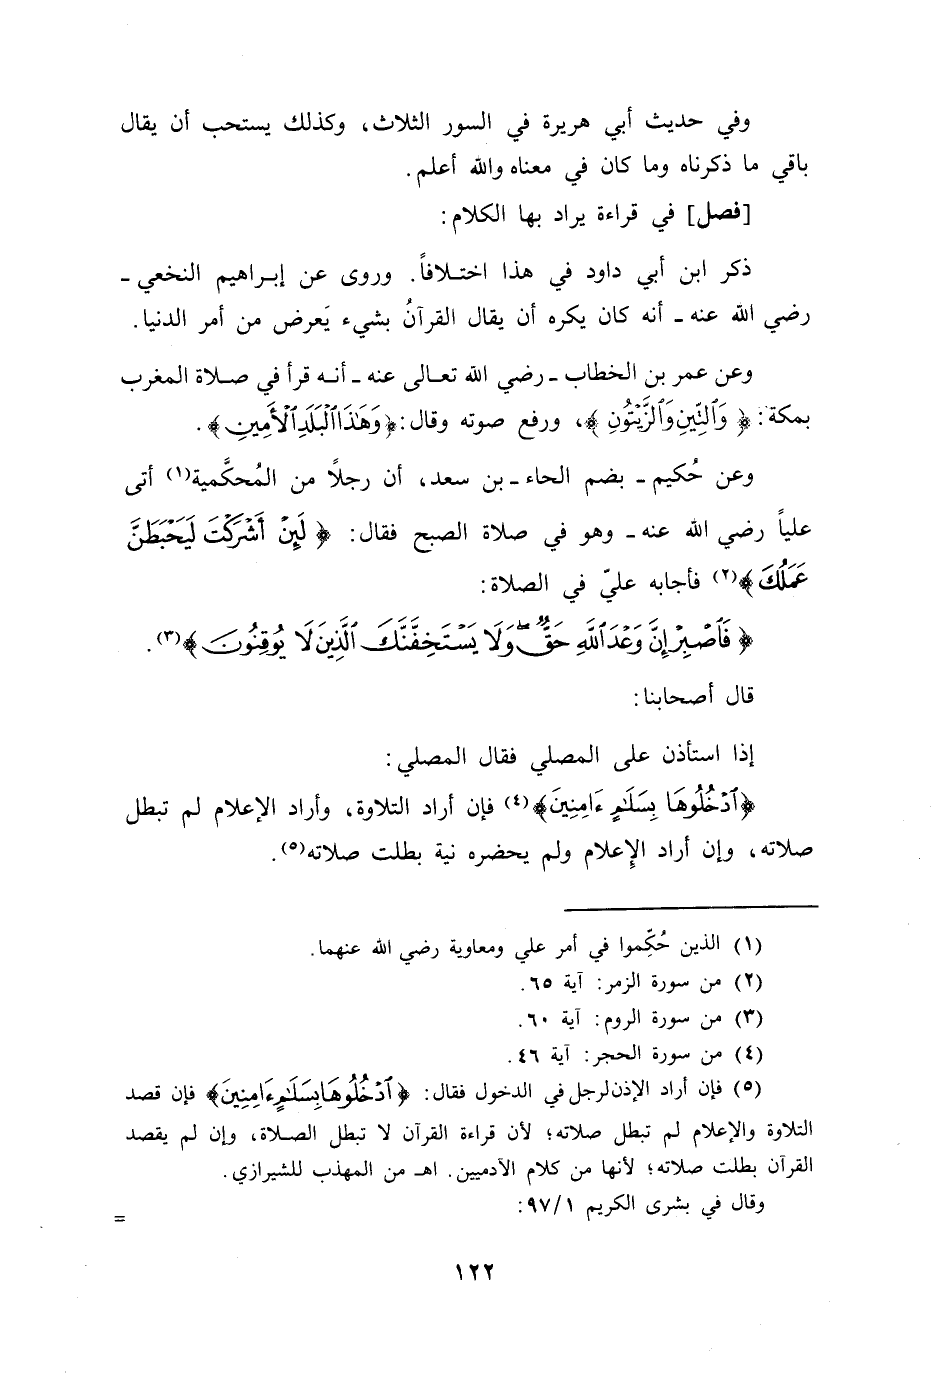 وفي حديث أبي هريرة في السور الثلاث، وكذلك يستحب أن يقال
باقي ما ذكرناه وما كان في معناه والله أعلم.
[فصل] في قراءة يراد بها الكلام:
ذكر ابن أبي داود في هذا اختلافاً. وروى عن إبراهيم النخعي ـ
رضي الله عنه ـ أنه كان يكره أن يقال القرآنُ بشيء يَعرض من أمر الدنيا.
وعن عمر بن الخطاب ـ رضي الله تعالى عنه ـ أنه قرأ في صلاة المغرب
بمكة: ﴿ وَٱلتِّينِ وَٱلزَّيْتُونِ ﴾، ورفع صوته وقال: ﴿وَهَٰذَا ٱلْبَلَدِ ٱلْأَمِينِ﴾.
وعن حُكيم ـ بضم الحاء ـ بن سعد، أن رجلاً من المُحكَّمية(١) أتى
علياً رضي الله عنه ـ وهو في صلاة الصبح فقال: ﴿ لَئِنْ أَشْرَكْتَ لَيَحْبَطَنَّ
عَمَلُكَ ﴾(٢) فأجابه عليّ في الصلاة:
﴿ فَٱصْبِرْ إِنَّ وَعْدَ ٱللَّهِ حَقٌّ وَلَا يَسْتَخِفَّنَّكَ ٱلَّذِينَ لَا يُوقِنُونَ ﴾(٣).
قال أصحابنا:
إذا استأذن على المصلي فقال المصلي:
﴿ٱدْخُلُوهَا بِسَلَٰمٍ ءَامِنِينَ﴾(٤) فإن أراد التلاوة، وأراد الإعلام لم تبطل
صلاته، وإن أراد الإعلام ولم يحضره نية بطلت صلاته(٥).
(١) الذين حُكِّموا في أمر علي ومعاوية رضي الله عنهما.
(٢) من سورة الزمر: آية ٦٥.
(٣) من سورة الروم: آية ٦٠.
(٤) من سورة الحجر: آية ٤٦.
(٥) فإن أراد الإذن لرجل في الدخول فقال: ﴿ ٱدْخُلُوهَا بِسَلَٰمٍ ءَامِنِينَ﴾ فإن قصد
التلاوة والإعلام لم تبطل صلاته؛ لأن قراءة القرآن لا تبطل الصلاة، وإن لم يقصد
القرآن بطلت صلاته؛ لأنها من كلام الآدميين. اهـ من المهذب للشيرازي.
وقال في بشرى الكريم ٩٧/١:
=
١٢٢